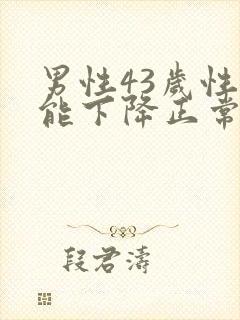 男性43歲性
能下降正常
段君濤